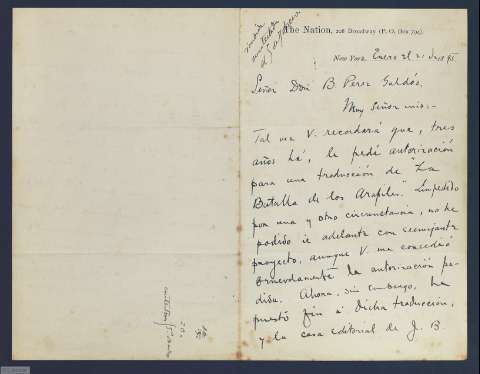 The Nation, 208 Broadway (P. O. Box 794).
New York, Enero 21 95
Señor Don B. Perez Galdós,
Muy Señor mio:-
Tal vez V. recordará que, tres
años há, le pedí autorización
para una traducción de "La
Batalla de los Arapiles." Impedido
por una y otra circunstancia, no he
podido ir adelante con semejante
proyecto, aunque V. me concedió
la autorización pe-
dida. Ahora, sin embargo, he
puesto fin á dicha traducción,
y la casa editorial de J. B.